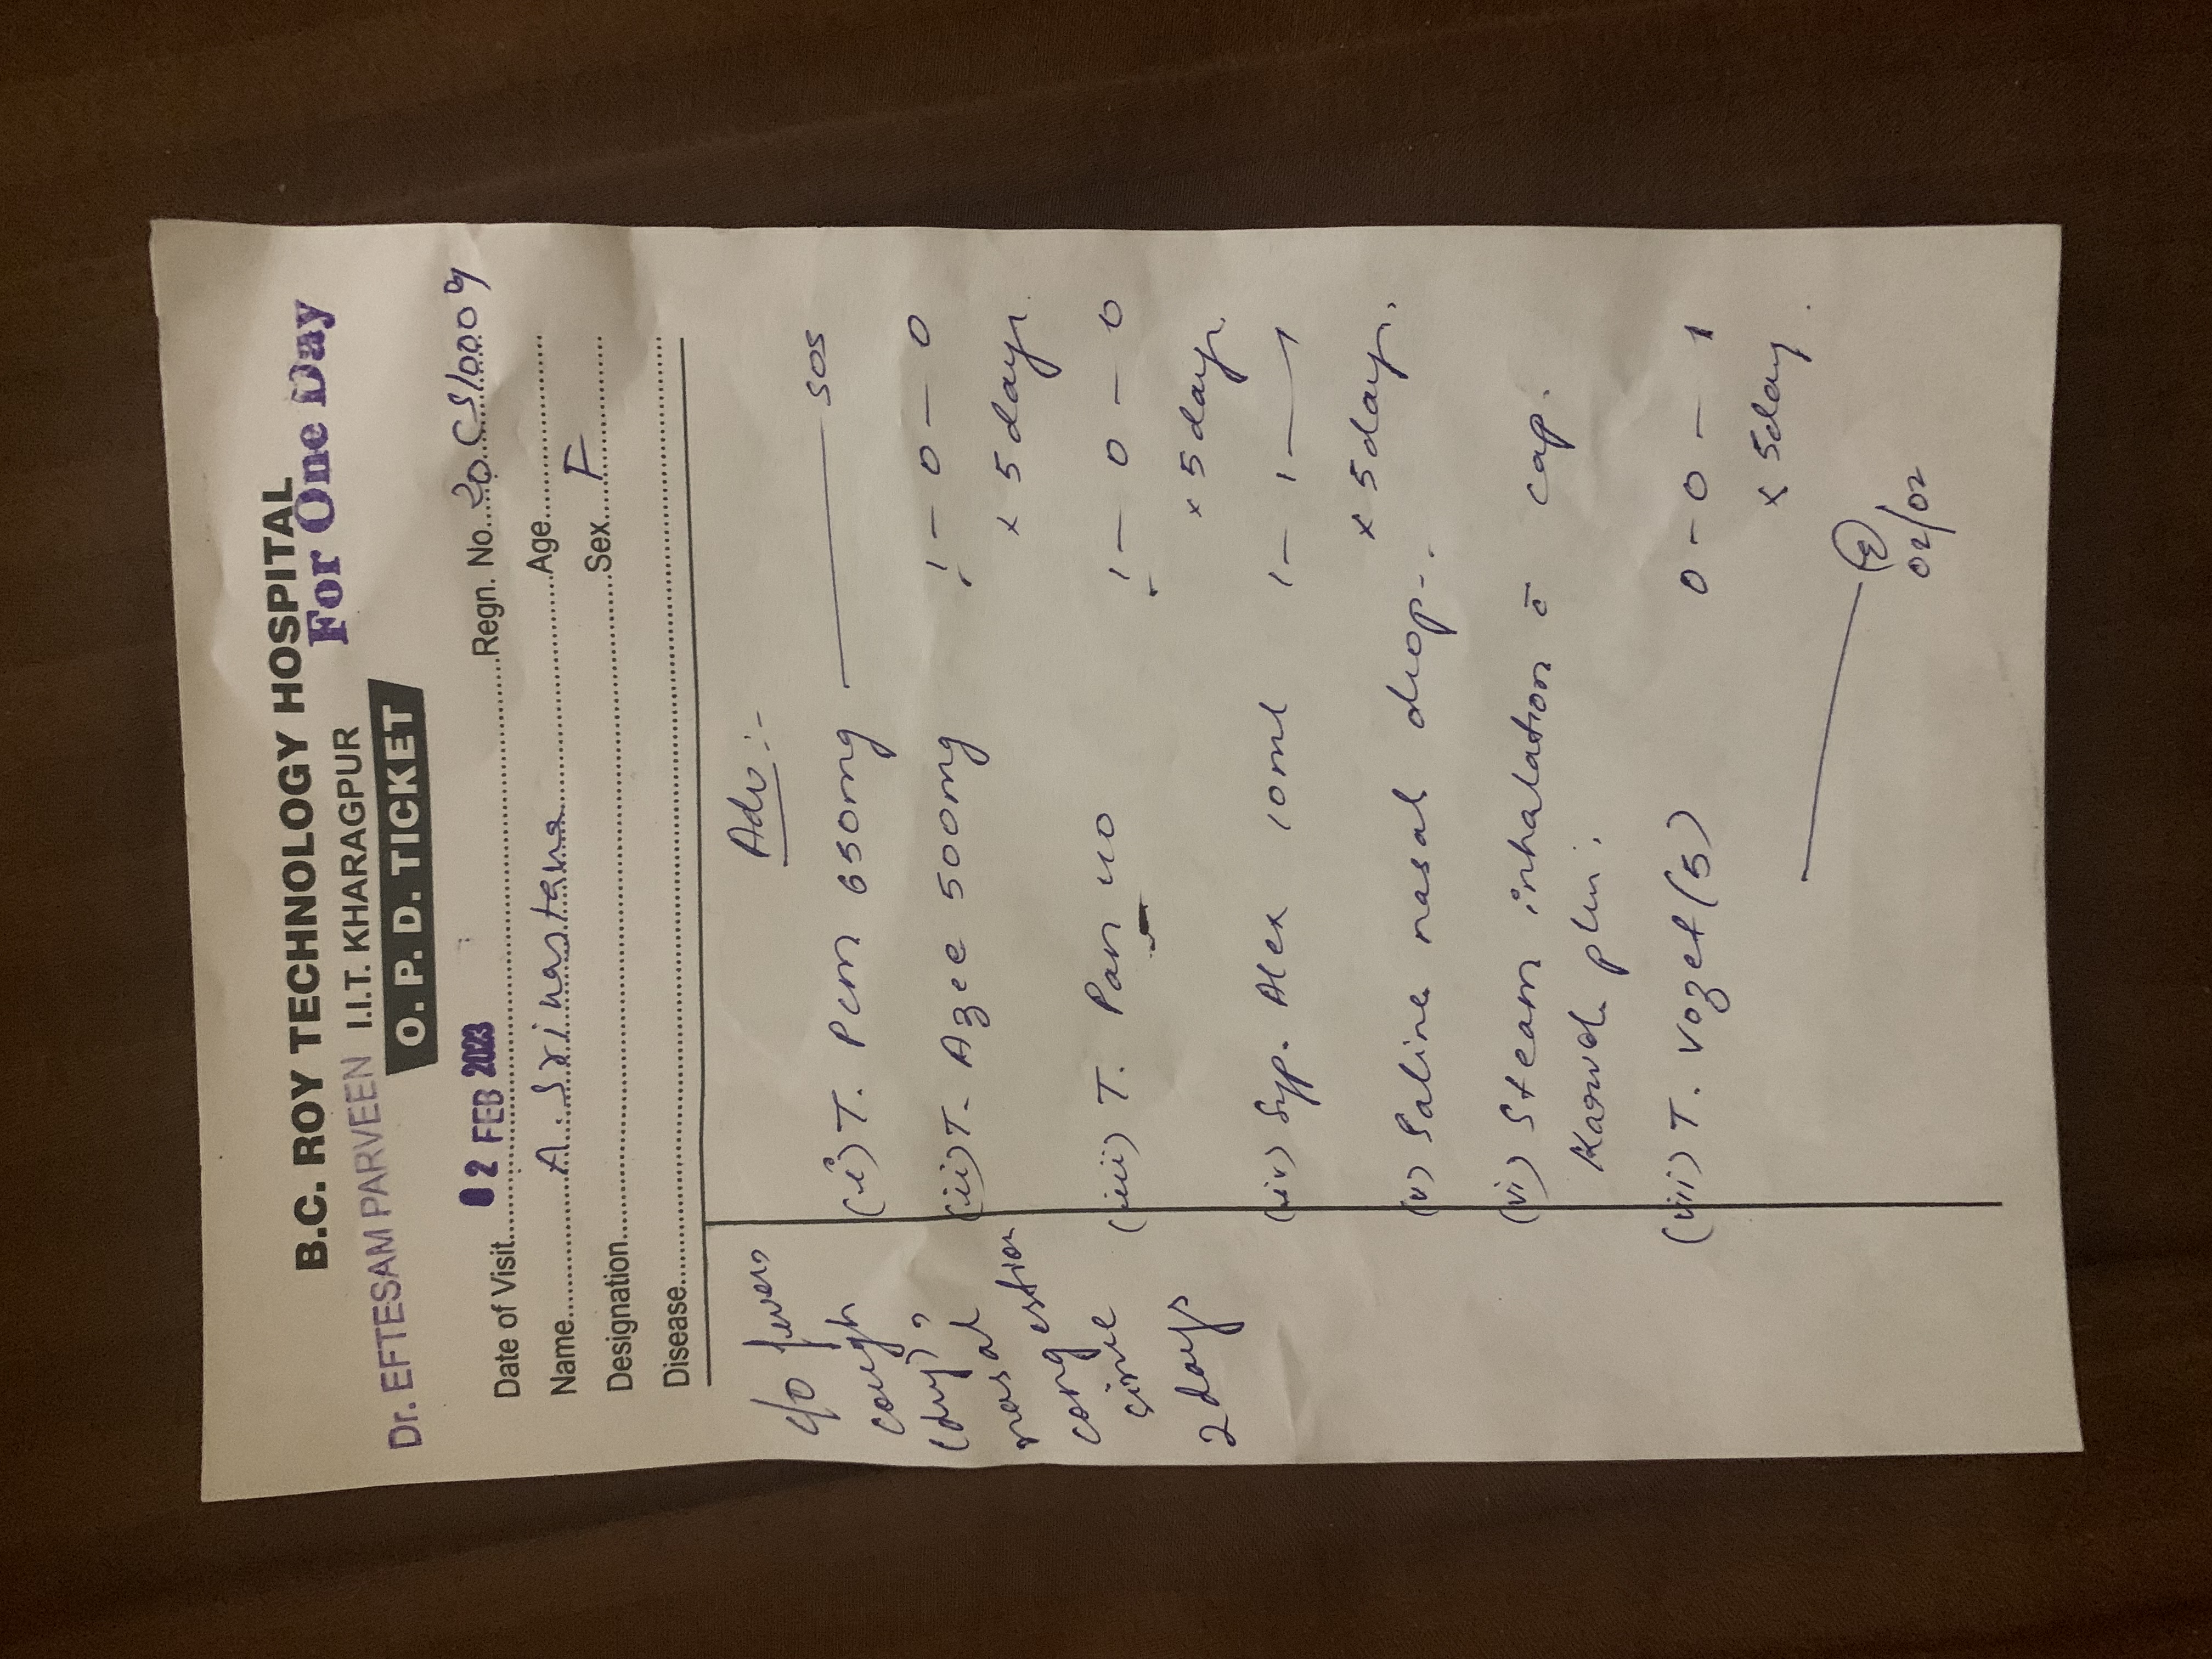 B.C. ROY TECHNOLOGY HOSPITAL
For One Day
Dr. EFTESAM PARVEEN
I.I.T. KHARAGPUR
O. P. D. TICKET
Date of Visit 02 FEB 2023 Regn. No. 20CS10009
Name A. Srivastava Age
Designation Sex F
Disease
c/o fever,
cough
(dry),
nasal
congestion
since
2 days
Adv :-
(i) T. Pcm 650mg — SOS
(ii) T. Azee 500mg 1 - 0 - 0
x 5 days
(iii) T. Pan 40 1 - 0 - 0
x 5 days
(iv) Syp. Alex 10ml 1 - 1 - 1
x 5 days
(v) Saline nasal drop.
(vi) Steam inhalation c̄ cap.
Karvol plus.
(vii) T. Vozet (5) 0 - 0 - 1
x 5 day
02/02